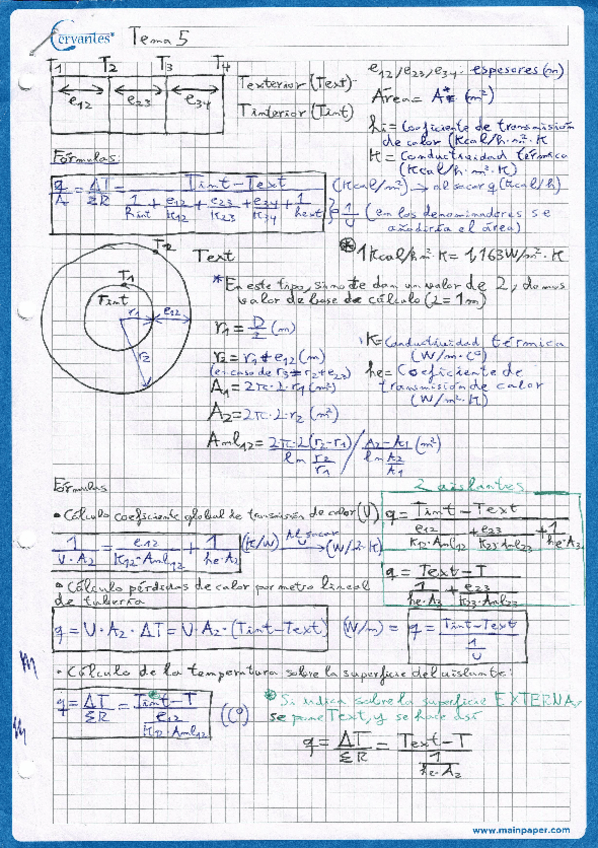 Cervantes Tema 5
T1 T2 T3 T4
e12 e23 e34
Texterior (Text)
Tinterior (Tint)
e12/e23/e34 = espesores (m)
Área = A* (m²)
hi = Coeficiente de transmisión
de calor (Kcal/h·m²·K)
K = Conductividad térmica
(Kcal/h·m·K)
Fórmulas:
q/A = ΔT/ΣR = (Tint - Text)/(1/hint + e12/K12 + e23/K23 + e34/K34 + 1/hext) (Kcal/m²) → al sacar q (Kcal/h)
= 1/U (en los denominadores se
añadiría el área)
* 1Kcal/h·m²·K = 1,163W/m²·K
T2 Text
T1
Tint
r1 e12
r2
* En este tipo, si no te dan un valor de 2, damos
valor de base de cálculo (2=1m)
r1 = D/2 (m)
r2 = r1 + e12 (m)
(en caso de r3 = r2 + e23)
A1 = 2π·2·r1 (m²)
A2 = 2π·2·r2 (m²)
Aml12 = 2π·2(r2-r1)/ln r2/r1 / A2-A1/ln A2/A1 (m²)
K = Conductividad térmica
(W/m·Cº)
he = Coeficiente de
transmisión de calor
(W/m²·K)
Fórmulas
• Cálculo coeficiente global de transmisión de calor (U)
1/(U·A2) = e12/(K12·Aml12) + 1/(he·A2) (K/W) Al sacar U → (W/m²·K)
2 aislantes
q = (Tint - Text)/(e12/(K12·Aml12) + e23/(K23·Aml23) + 1/(he·A3))
q = (Text - T)/(1/(he·A3) + e23/(K23·Aml23))
• Cálculo pérdidas de calor por metro lineal
de tubería
q = U·A2·ΔT = U·A2·(Tint-Text) (W/m) = q = (Tint-Text)/(1/U)
• Cálculo de la temperatura sobre la superficie del aislante:
q = ΔT/ΣR = (Tint - T)/(e12/(K12·Aml12)) (Cº)
* Si indica sobre la superficie EXTERNA,
se pone Text, y se hace así
q = ΔT/ΣR = (Text - T)/(1/(he·A2))
www.mainpaper.com